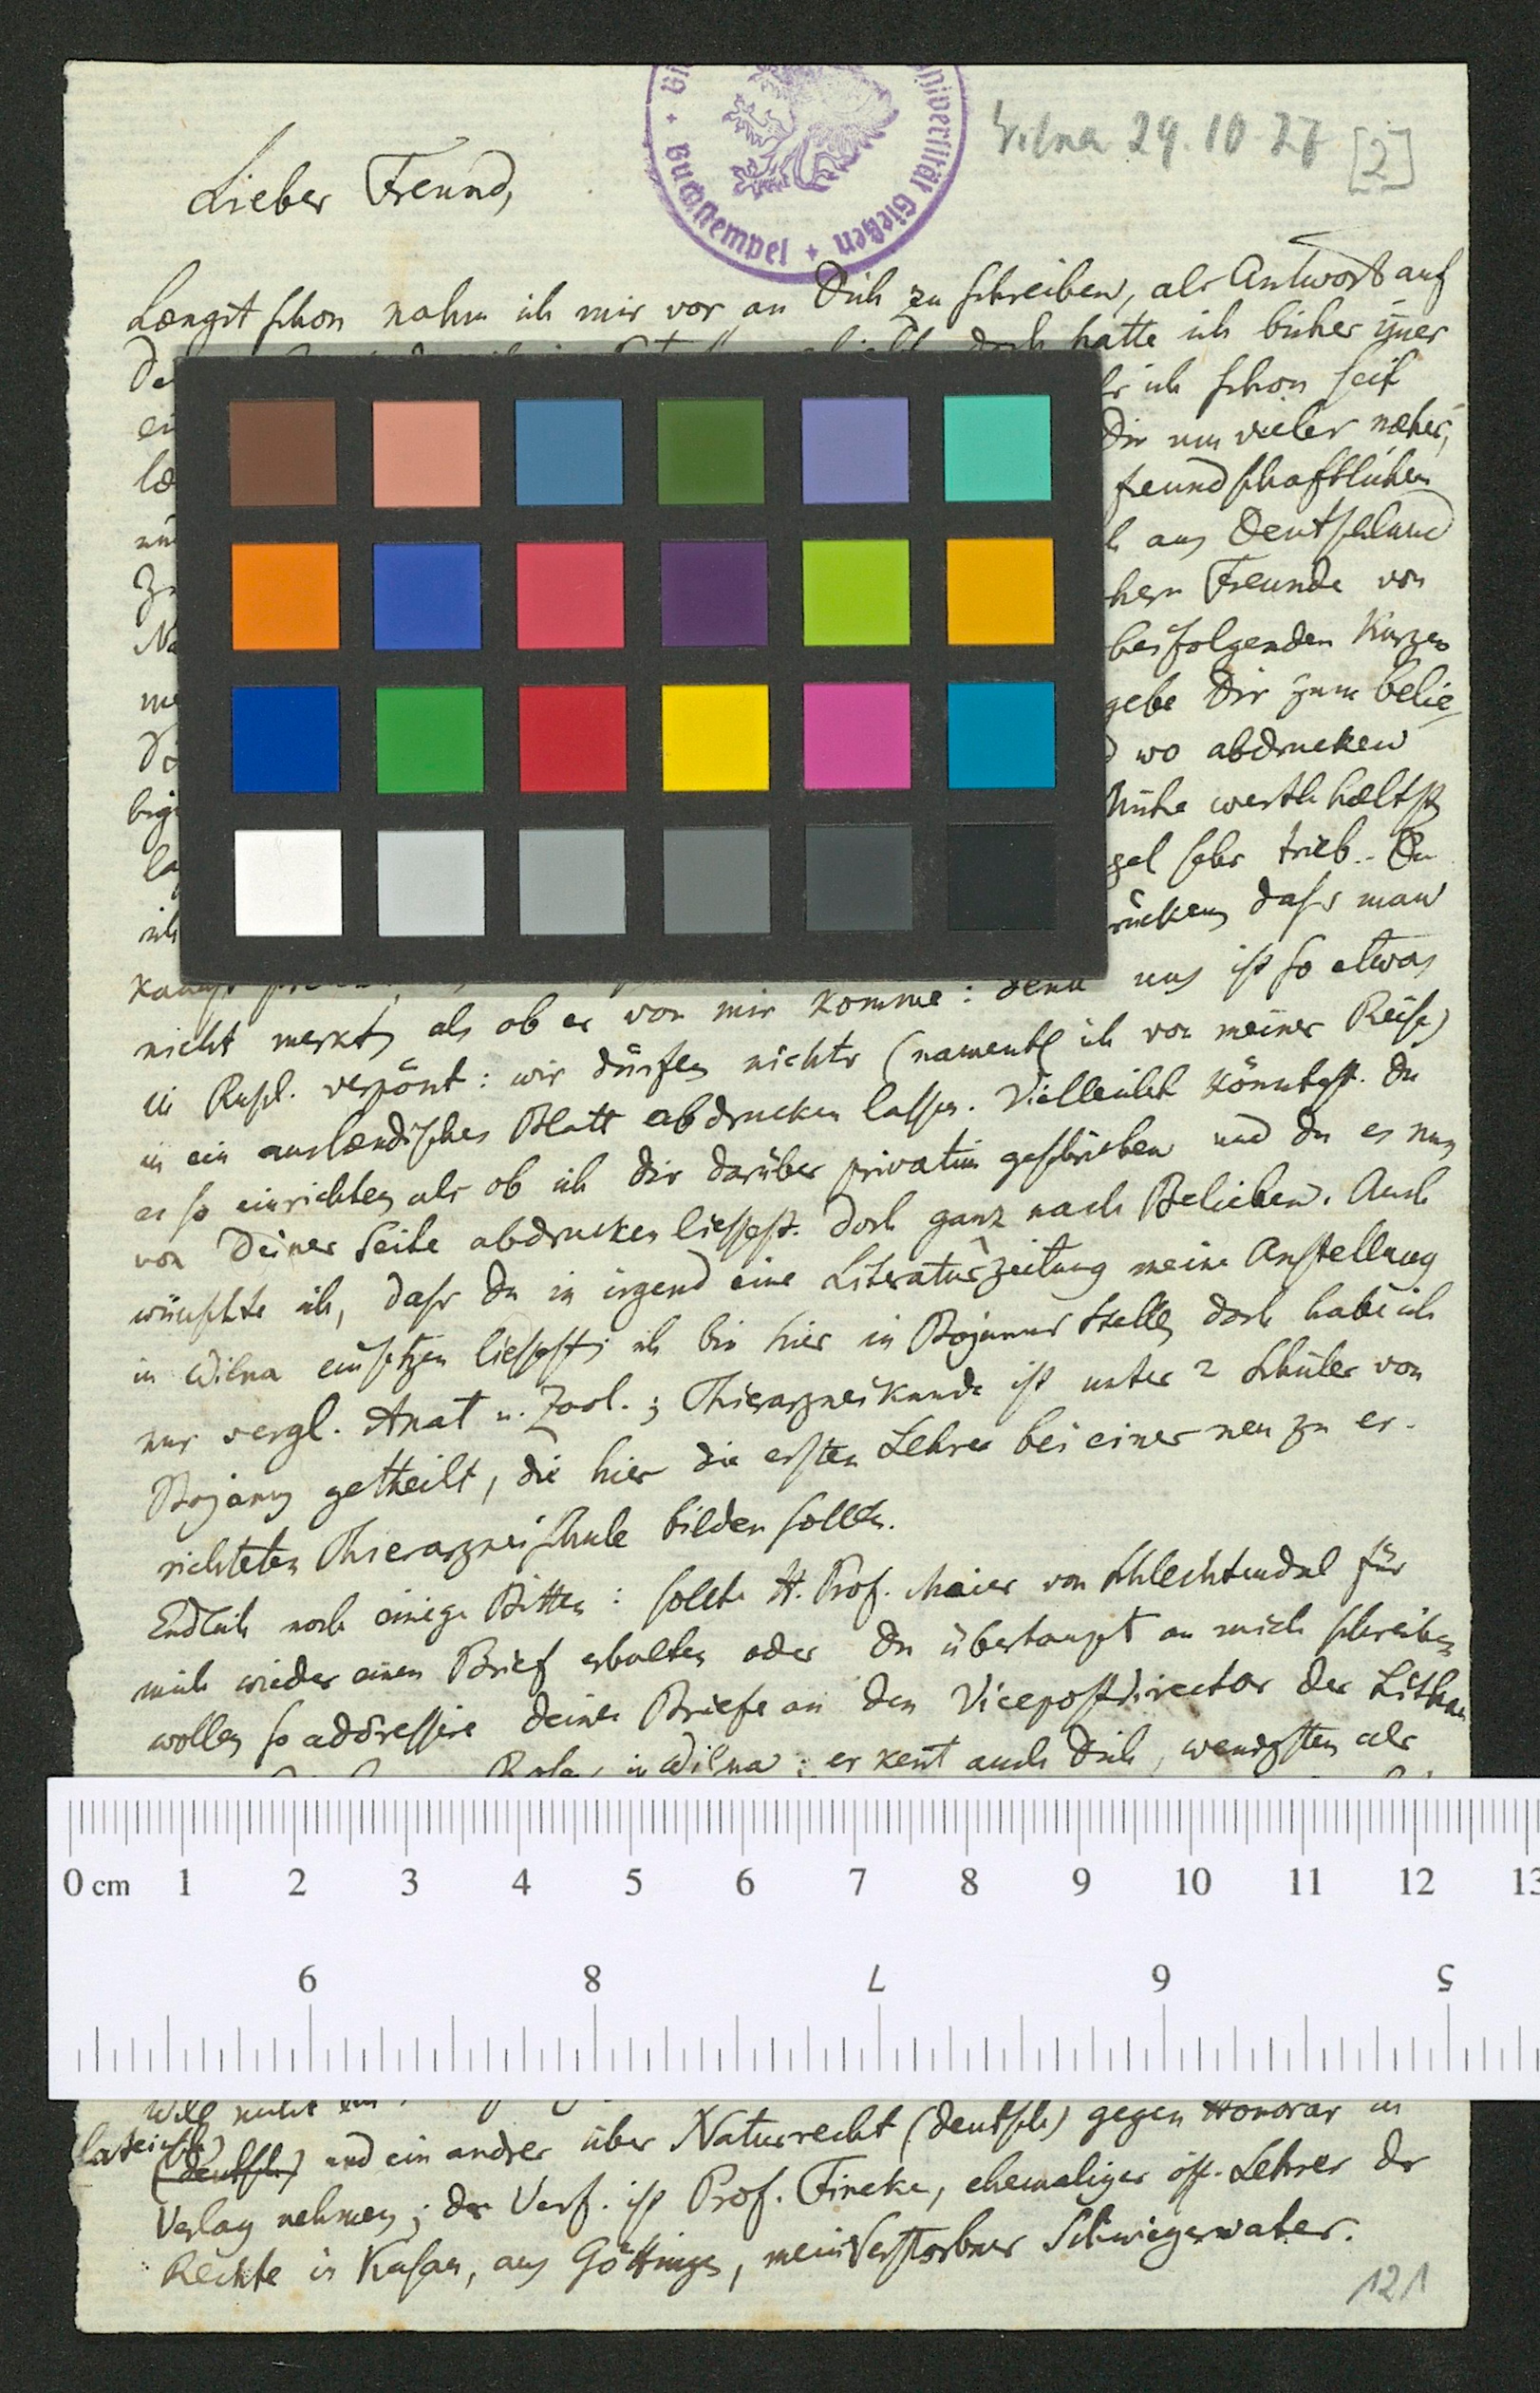 Universität Gießen
Buchstempel
Wilna 29.10.27 [2]
Lieber Freund,
Længst schon nahm ich mir vor an Dich zu schreiben, als Antwort auf
doch hatte ich bisher im̄er
ich schon seit
Dir um vieler næher,
freundschaftlichen
aus Deutschland
Freunde von
beifolgenden Kurzen
gebe Dir zum belie-
wo abdrucken
Mühe werth hæltst,
sehr trieb. - Du
dass man
nicht merkt, als ob er von mir komme: denn uns ist so etwas
in Russl. verpönt: wir dürfen nichts (namentl ich von meiner Reise)
in ein auslændisches Blatt abdrucken lassen. Vielleicht könntest Du
es so einrichten, als ob ich dir darüber privatim geschrieben und du es nun
von Deiner Seite abdrucken liessest. Doch ganz nach Belieben. Auch
wünschte ich, dass du in irgend eine Literaturzeitung meine Anstellung
in Wilna einsetzen liessest; ich bin hier in Bojanus Stelle, doch habe ich
nur vergl. Anat u. Zool.; Thierarzneikunde ist unter 2 Schüler von
Bojanus getheilt, die hier die ersten Lehrer bei einer neu zu er-
richteten Thierarzneischule bilden sollen.
Endlich noch einige Bitten: sollte H. Prof. Maier von Schlechtendal für
mich wieder einen Brief erhalten oder du überhaupt an mich schreiben
wollen, so addressire deine Briefe an den Vicepostdirector der Litthau
in Wilna; er kent auch Dich, wenigsten als
will nicht
lateinisch
(deutsch) und ein andrer über Naturrecht (deutsch) gegen Honorar in
Verlag nehmen; der Verf. ist Prof. Fincke, ehemaliger öff. Lehrer der
Rechte in Kasan, aus Göttingen, mein verstorbner Schwiegervater.
121
0 cm 1 2 3 4 5 6 7 8 9 10 11 12 13
9 8 7 6 5